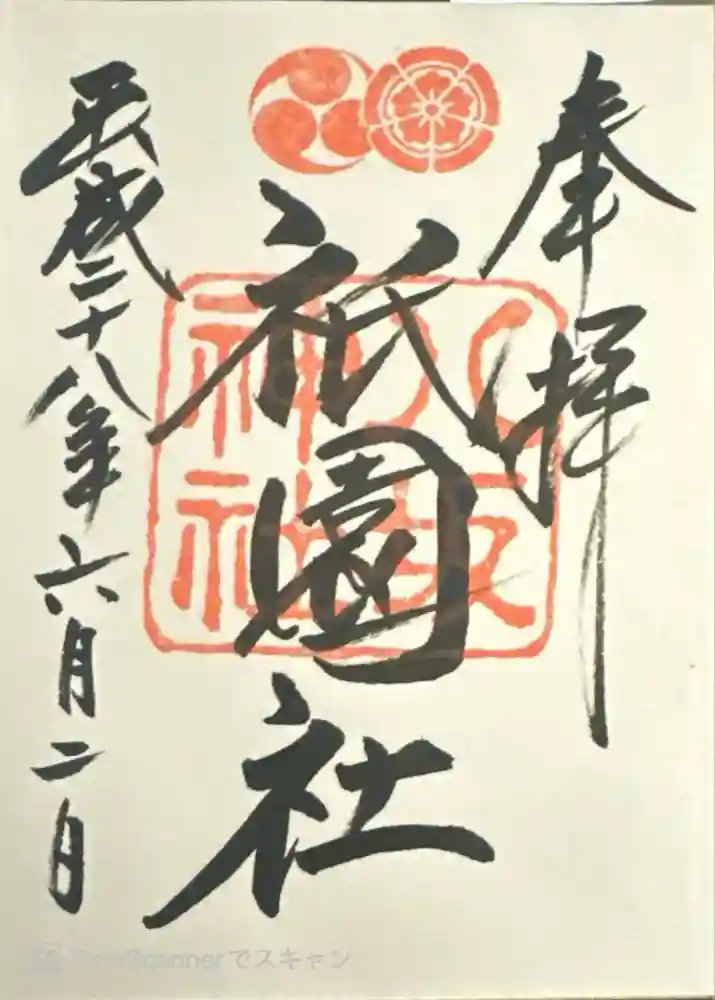 奉拝
八坂
神社
祇園社
平成二十八年六月二日
CamScannerでスキャン